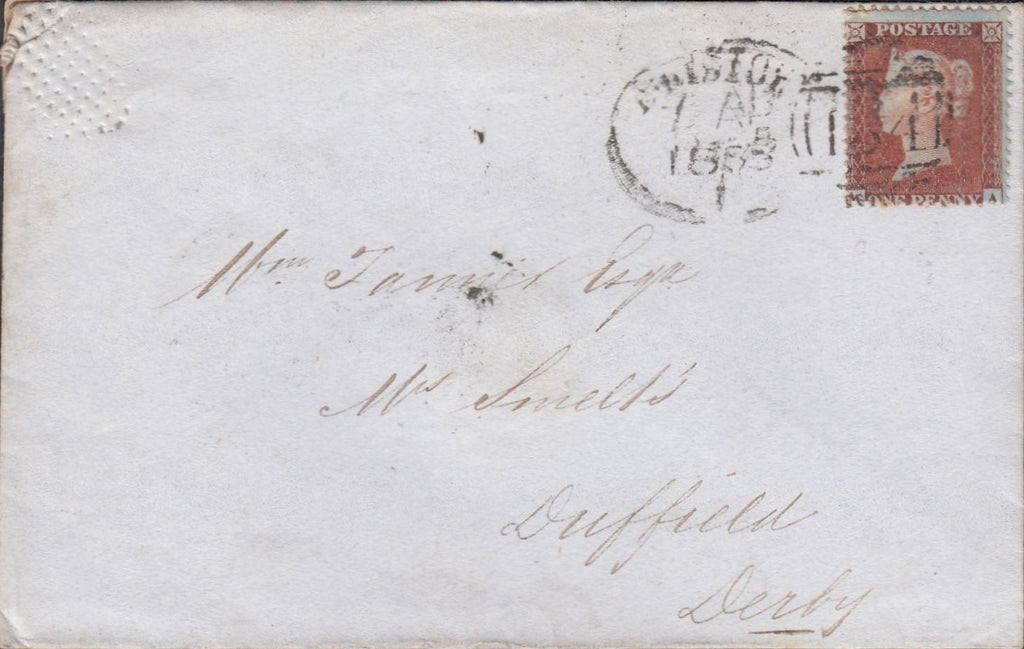 BRISTOL
AP
1855
134
POSTAGE
ONE PENNY A
Wm. Tanner Esqr
Mrs Smelt's
Duffield
Derby